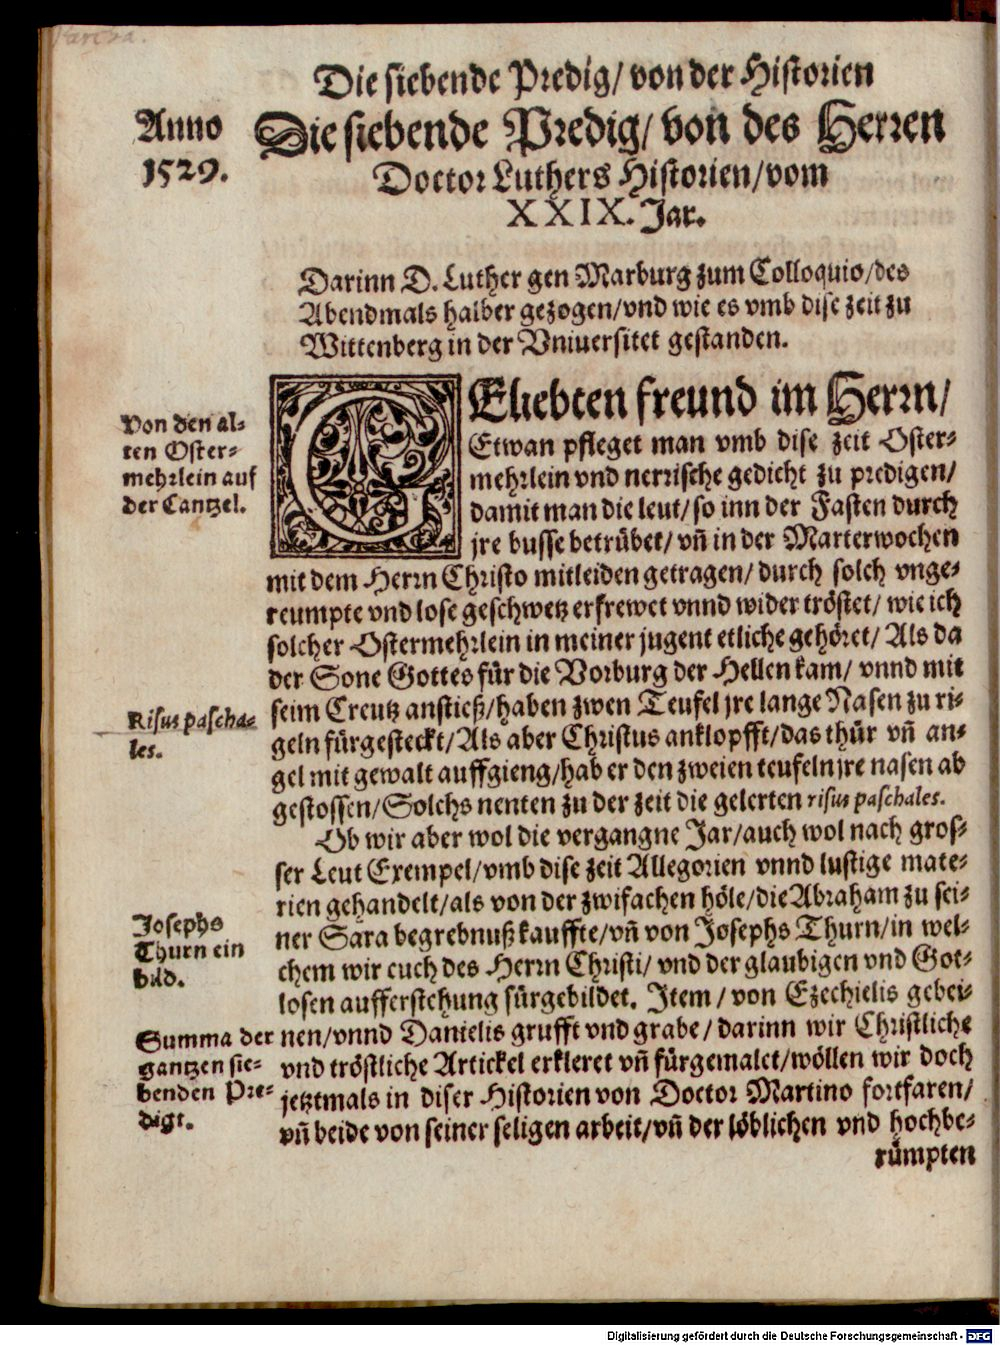 Die siebende Predig/ von der Historien
Anno
1529.
Die siebende Predig/ von des Herren
Doctor Luthers Historien/ vom
XXIX. Jar.
Darinn D. Luther gen Marburg zum Colloquio/ des
Abendmals halber gezogen/ vnd wie es vmb dise zeit zu
Wittenberg in der Vniuersitet gestanden.
Von den al-
ten Oster-
mehrlein auf
der Cantzel.
GEliebten freund im Herrn/
Etwan pfleget man vmb dise zeit Oster-
mehrlein vnd nerrische gedicht zu predigen/
damit man die leut/ so inn der Fasten durch
jre busse betrübet/ vñ in der Marterwochen
mit dem Herrn Christo mitleiden getragen/ durch solch vnge-
reumpte vnd lose geschwetz erfrewet vnnd wider tröstet/ wie ich
solcher Ostermehrlein in meiner jugent etliche gehöret/ Als da
der Sone Gottes für die Vorburg der Hellen kam/ vnnd mit
seim Creutz anstieß/ haben zwen Teufel jre lange Nasen zu ri-
geln fürgesteckt/ Als aber Christus anklopfft/ das thür vñ an-
gel mit gewalt auffgieng/ hab er den zweien teufeln jre nasen ab
gestossen/ Solchs nenten zu der zeit die gelerten risus paschales.
Risus pascha-
les.
Ob wir aber wol die vergangne Jar/ auch wol nach gros-
ser Leut Exempel/ vmb dise zeit Allegorien vnnd lustige mate-
rien gehandelt/ als von der zwifachen höle/ die Abraham zu sei-
ner Sara begrebnuß kauffte/ vñ von Josephs Thurn/ in wel-
chem wir euch des Herrn Christi/ vnd der glaubigen vnd Got-
losen aufferstehung fürgebildet. Item/ von Ezechielis gebei-
nen/ vnnd Danielis grufft vnd grabe/ darinn wir Christliche
vnd tröstliche Artickel erkleret vñ fürgemalet/ wöllen wir doch
jetztmals in diser Historien von Doctor Martino fortfaren/
vñ beide von seiner seligen arbeit/ vñ der löblichen vnd hochbe-
rümpten
Josephs
Thurn ein
bild.
Summa der
gantzen sie-
benden Pre-
digt.
Digitalisierung gefördert durch die Deutsche Forschungsgemeinschaft - DFG